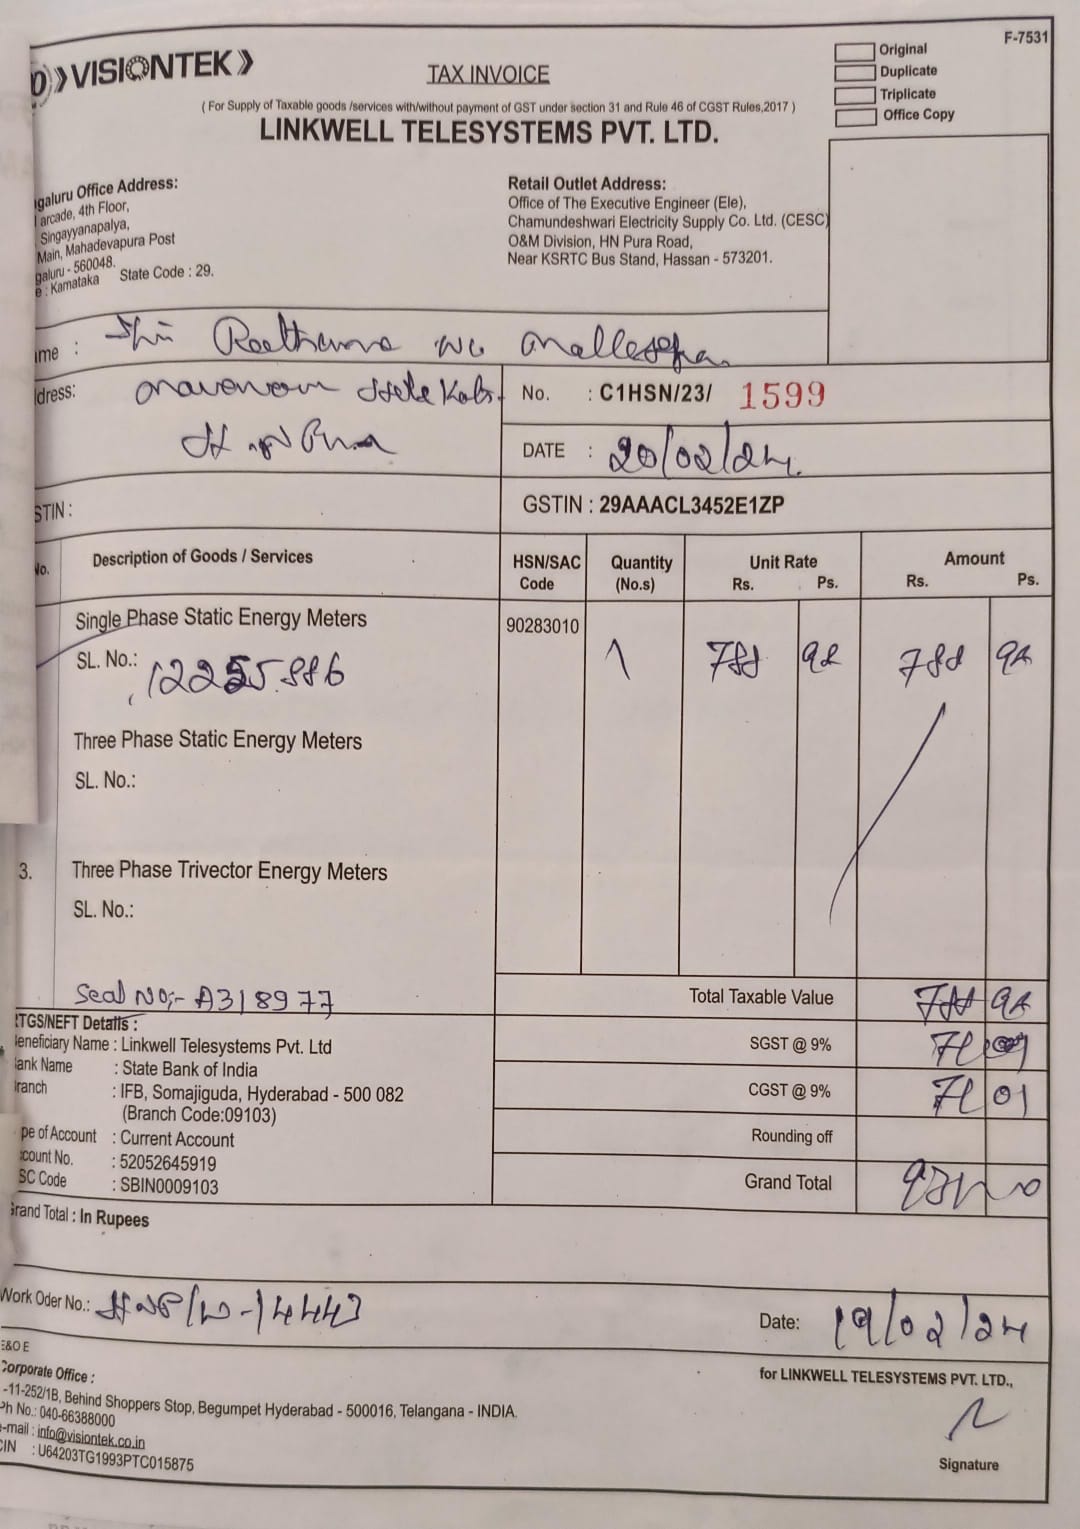 VISIONTEK
F-7531
TAX INVOICE
Original
Duplicate
Triplicate
Office Copy
( For Supply of Taxable goods /services with/without payment of GST under section 31 and Rule 46 of CGST Rules,2017 )
LINKWELL TELESYSTEMS PVT. LTD.
galuru Office Address:
arcade, 4th Floor,
Singayyanapalya,
Main, Mahadevapura Post
galuru - 560048.
e : Karnataka State Code : 29.
Retail Outlet Address:
Office of The Executive Engineer (Ele),
Chamundeshwari Electricity Supply Co. Ltd. (CESC)
O&M Division, HN Pura Road,
Near KSRTC Bus Stand, Hassan - 573201.
me :
dress:
H N Pura
No. : C1HSN/23/ 1599
DATE : 20/02/24
STIN :
GSTIN : 29AAACL3452E1ZP
No. Description of Goods / Services HSN/SAC Code Quantity (No.s) Unit Rate Rs. Ps. Amount Rs. Ps.
Single Phase Static Energy Meters 90283010 1 788 98 788 98
SL. No.: 12255886
Three Phase Static Energy Meters
SL. No.:
3. Three Phase Trivector Energy Meters
SL. No.:
Seal No:- A318977
Total Taxable Value 788 98
RTGS/NEFT Details :
Beneficiary Name : Linkwell Telesystems Pvt. Ltd
SGST @ 9% 71 01
Bank Name : State Bank of India
Branch : IFB, Somajiguda, Hyderabad - 500 082
(Branch Code:09103)
CGST @ 9% 71 01
pe of Account : Current Account
Rounding off
count No. : 52052645919
SC Code : SBIN0009103
Grand Total
Grand Total : In Rupees
Work Oder No.: HNP/W-14443
Date: 19/02/24
E&O E
Corporate Office :
-11-252/1B, Behind Shoppers Stop, Begumpet Hyderabad - 500016, Telangana - INDIA.
Ph No.: 040-66388000
e-mail : info@visiontek.co.in
CIN : U64203TG1993PTC015875
for LINKWELL TELESYSTEMS PVT. LTD.,
Signature